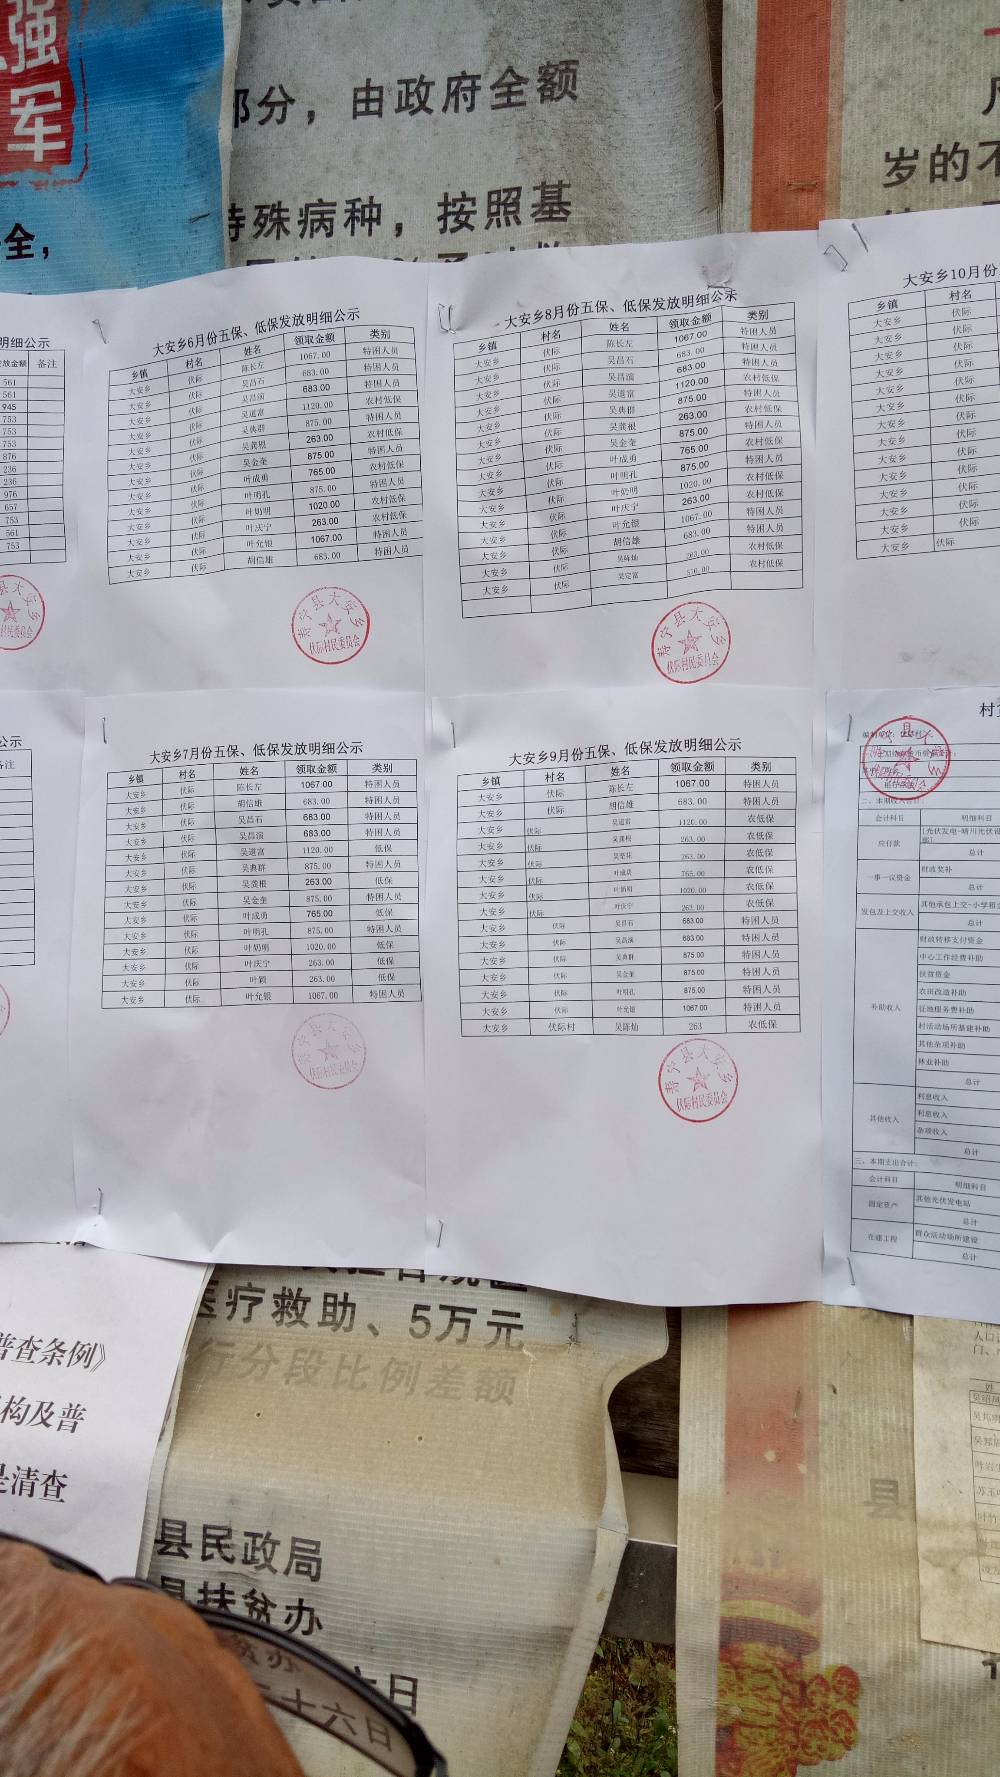 强
军
全，
部分，由政府全额
特殊病种，按照基
岁的不
明细公示
放金额 备注
561
561
945
753
753
753
876
236
236
976
657
753
561
753
大安乡6月份五保、低保发放明细公示
乡镇 村名 姓名 领取金额 类别
大安乡 伏际 陈长左 1067.00 特困人员
大安乡 伏际 吴昌石 683.00 特困人员
大安乡 伏际 吴昌演 683.00 特困人员
大安乡 伏际 吴道富 1120.00 农村低保
大安乡 伏际 吴典群 875.00 特困人员
大安乡 伏际 吴龚根 263.00 农村低保
大安乡 伏际 吴金奎 875.00 特困人员
大安乡 伏际 叶成勇 765.00 农村低保
大安乡 伏际 叶明孔 875.00 特困人员
大安乡 伏际 叶奶明 1020.00 农村低保
大安乡 伏际 叶庆宁 263.00 农村低保
大安乡 伏际 叶允银 1067.00 特困人员
大安乡 伏际 胡信雄 683.00 特困人员
寿宁县大安乡
伏际村民委员会
大安乡8月份五保、低保发放明细公示
乡镇 村名 姓名 领取金额 类别
大安乡 伏际 陈长左 1067.00 特困人员
大安乡 伏际 吴昌石 683.00 特困人员
大安乡 伏际 吴昌演 683.00 特困人员
大安乡 伏际 吴道富 1120.00 农村低保
大安乡 伏际 吴典群 875.00 特困人员
大安乡 伏际 吴龚根 263.00 农村低保
大安乡 伏际 吴金奎 875.00 特困人员
大安乡 伏际 叶成勇 765.00 农村低保
大安乡 伏际 叶明孔 875.00 特困人员
大安乡 伏际 叶奶明 1020.00 农村低保
大安乡 伏际 叶庆宁 263.00 农村低保
大安乡 伏际 叶允银 1067.00 特困人员
大安乡 伏际 胡信雄 683.00 特困人员
大安乡 伏际 吴陈灿 263.00 农村低保
大安乡 伏际 吴定富 510.00 农村低保
寿宁县大安乡
伏际村民委员会
大安乡10月份
乡镇 村名
大安乡 伏际
大安乡 伏际
大安乡 伏际
大安乡 伏际
大安乡 伏际
大安乡 伏际
大安乡 伏际
大安乡 伏际
大安乡 伏际
大安乡 伏际
大安乡 伏际
大安乡 伏际
大安乡 伏际
大安乡 伏际
公示
备注
大安乡7月份五保、低保发放明细公示
乡镇 村名 姓名 领取金额 类别
大安乡 伏际 陈长左 1067.00 特困人员
大安乡 伏际 胡信雄 683.00 特困人员
大安乡 伏际 吴昌石 683.00 特困人员
大安乡 伏际 吴昌演 683.00 特困人员
大安乡 伏际 吴道富 1120.00 低保
大安乡 伏际 吴典群 875.00 特困人员
大安乡 伏际 吴龚根 263.00 低保
大安乡 伏际 吴金奎 875.00 特困人员
大安乡 伏际 叶成勇 765.00 低保
大安乡 伏际 叶明孔 875.00 特困人员
大安乡 伏际 叶奶明 1020.00 低保
大安乡 伏际 叶庆宁 263.00 低保
大安乡 伏际 叶颖 263.00 低保
大安乡 伏际 叶允银 1067.00 特困人员
寿宁县大安乡
伏际村民委员会
大安乡9月份五保、低保发放明细公示
乡镇 村名 姓名 领取金额 类别
大安乡 伏际 陈长左 1067.00 特困人员
大安乡 伏际 胡信雄 683.00 特困人员
大安乡 伏际 吴道富 1120.00 农低保
大安乡 伏际 吴龚根 263.00 农低保
大安乡 伏际 263.00 农低保
大安乡 伏际 叶成勇 765.00 农低保
大安乡 伏际 叶奶明 1020.00 农低保
大安乡 伏际 叶庆宁 263.00 农低保
大安乡 伏际 吴昌石 683.00 特困人员
大安乡 伏际 吴昌演 683.00 特困人员
大安乡 伏际 吴典群 875.00 特困人员
大安乡 伏际 吴金奎 875.00 特困人员
大安乡 伏际 叶明孔 875.00 特困人员
大安乡 伏际 叶允银 1067.00 特困人员
大安乡 伏际村 吴陈灿 263 农低保
寿宁县大安乡
伏际村民委员会
会计科目 明细科目
应付款
总计
一事一议资金 财政奖补
总计
发包及上交收入 其他承包上交-小学租金
总计
补助收入 财政转移支付资金
中心工作经费补助
扶贫资金
农田改造补助
征地服务费补助
村活动场所基建补助
其他杂项补助
林业补助
总计
其他收入 利息收入
利息收入
杂项收入
总计
三、本期支出合计：
会计科目 明细科目
固定资产 其他光伏发电站
总计
在建工程 群众活动场所建设
总计
普查条例》
构及普
是清查
医疗救助、5万元
行分段比例差额
县民政局
县扶贫办
二十六日
县